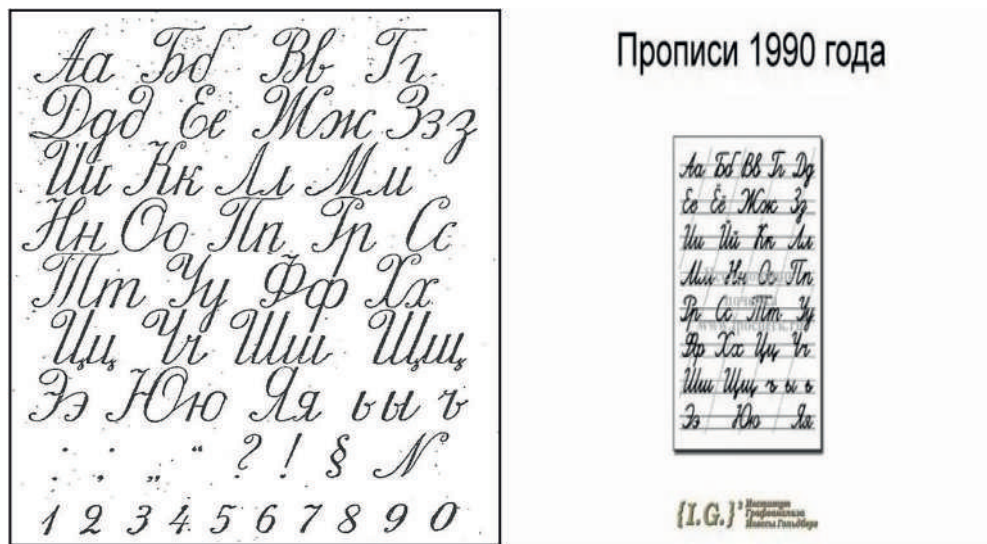 Аа Бб Вв Гг
Ддд Ее Жж Ззз
Ии Кк Лл Мм
Нн Оо Пп Рр Сс
Тт Уу Фф Хх
Цц Чч Шш Щщ
Ээ Юю Яя ь ы ъ
. : . , „ “ ? ! § N
1 2 3 4 5 6 7 8 9 0
Прописи 1990 года
Аа Бб Вв Гг Дд
Ее Ёё Жж Зз
Ии Йй Кк Лл
Мм Нн Оо Пп
Рр Сс Тт Уу
Фф Хх Цц Чч
Шш Щщ ъ ы ь
Ээ Юю Яя
{I.G.}²
Институт
Графоанализа
Инессы Гольдберг